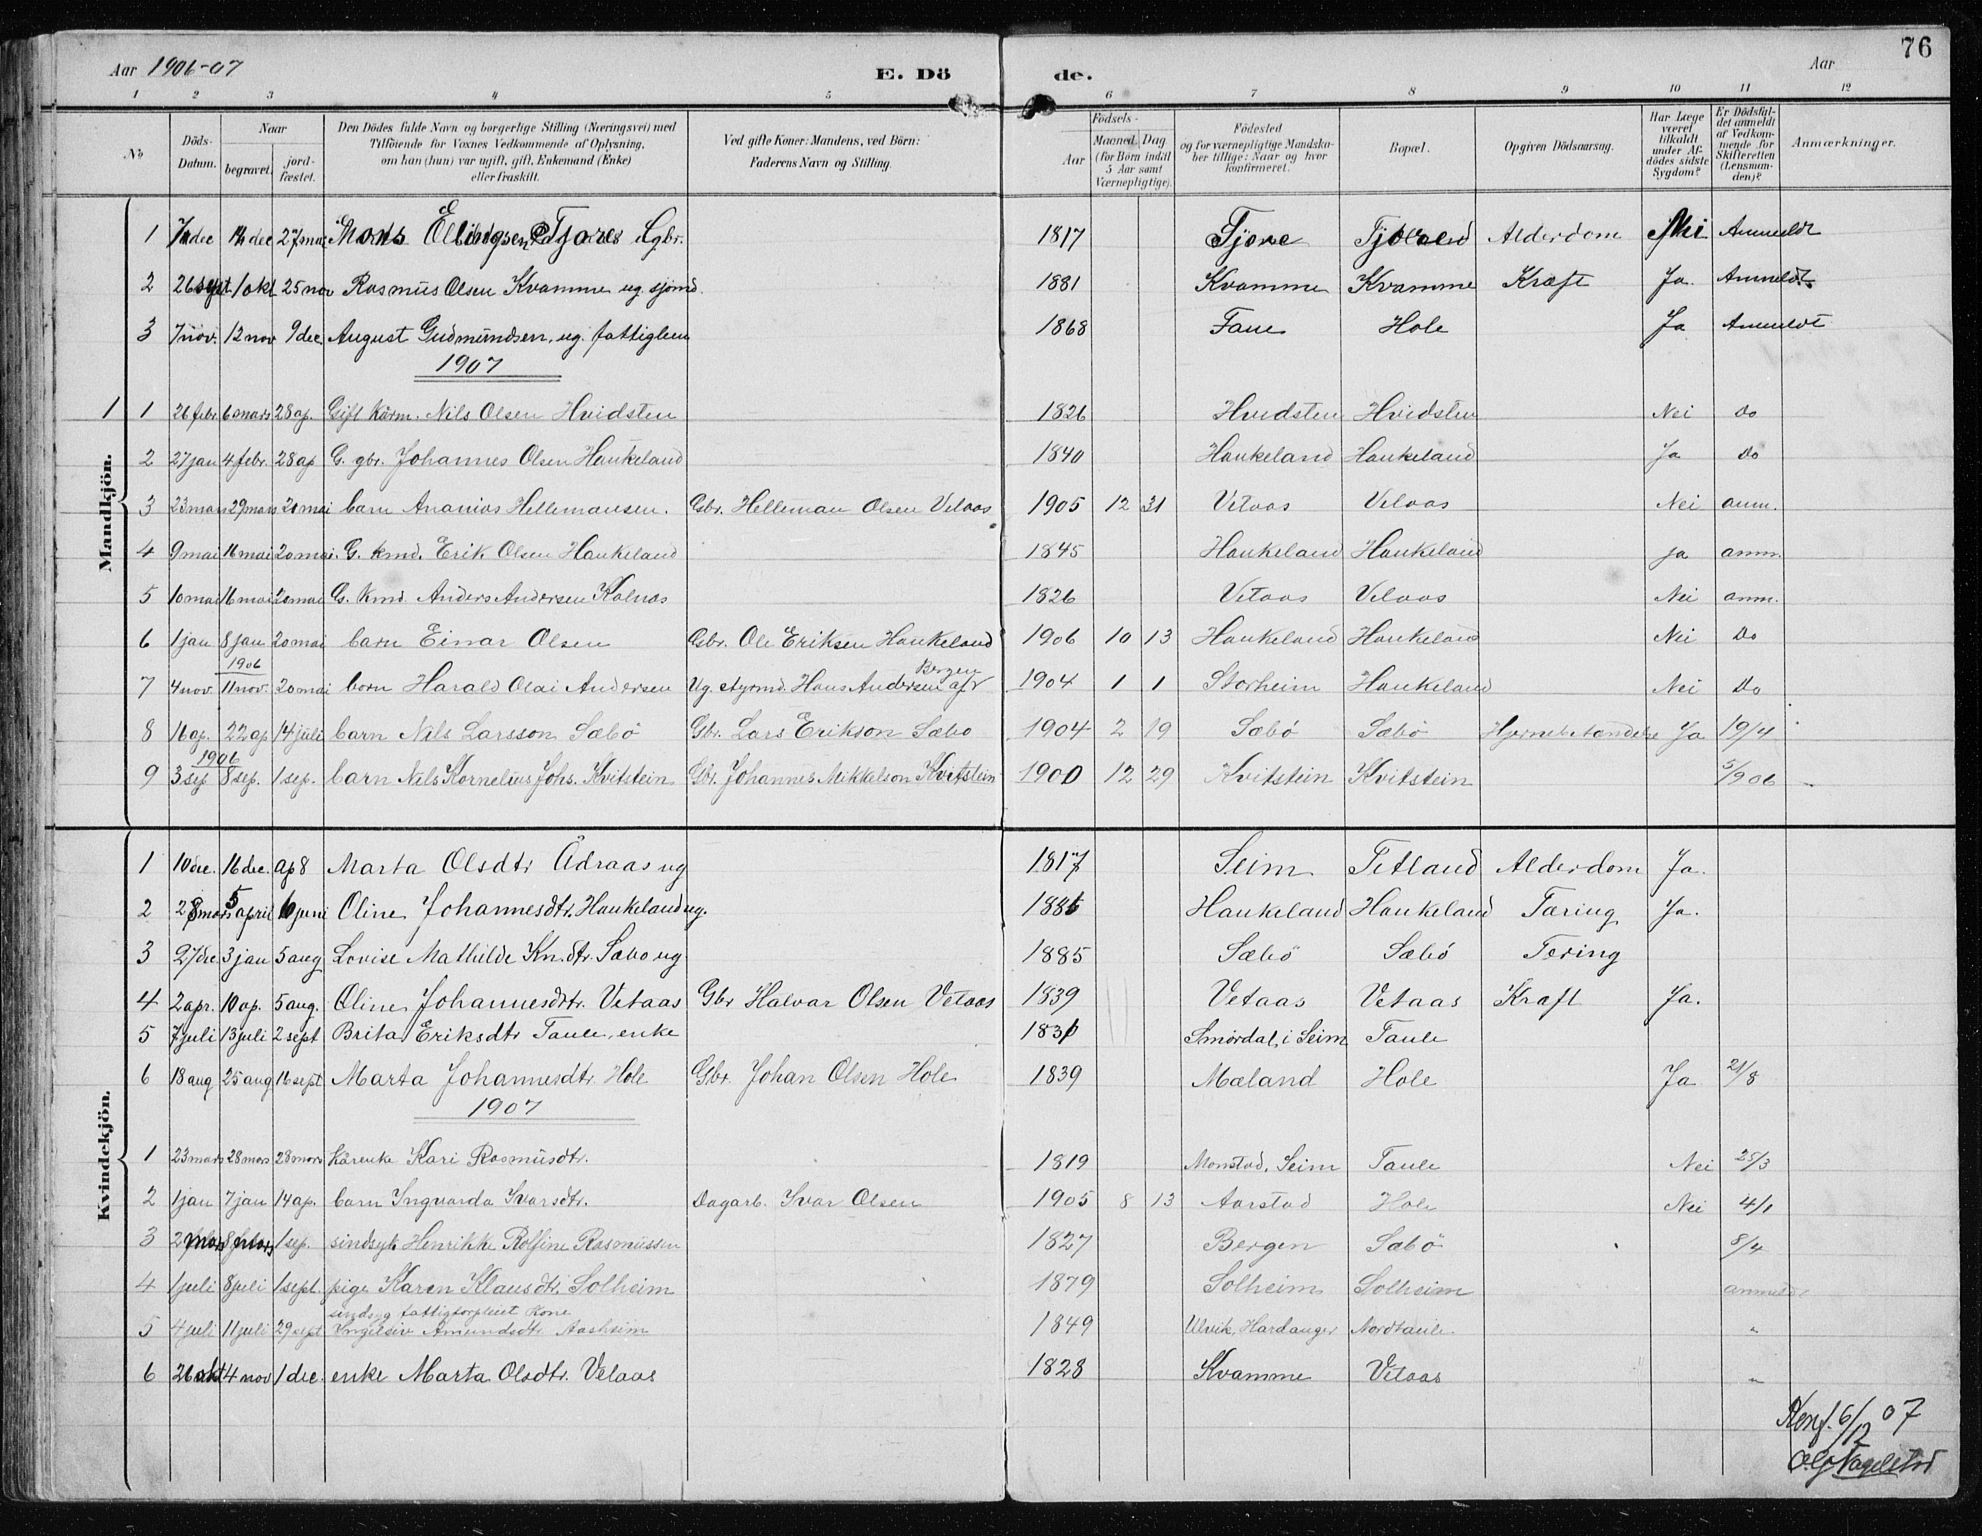 76
Aar 1906-07 E. Dö de. Aar
1 2 3 4 5 6 7 8 9 10 11 12
No
Döds-Datum.
Naar
begravet.
jord-fæstet.
Den Dödes fulde Navn og borgerlige Stilling (Næringsvei) med
Tilföiende for Voxnes Vedkommende af Oplysning,
om han (hun) var ugift, gift, Enkemand (Enke)
eller fraskilt.
Ved gifte Koner: Mandens, ved Börn:
Faderens Navn og Stilling.
Födsels-
Aar
Maaned. Dag
(for Börn indtil
5 Aar samt
Værnepligtige).
Födested
og for værnepligtige Mandska-
ber tillige: Naar og hvor
konfirmeret.
Bopæl.
Opgiven Dödsaarsag.
Har Læge
været
tilkaldt
under Af-
dödes sidste
Sygdom?
Er Dödsfal-
det anmeldt
af Vedkom-
mende for
Skifteretten
(Lensman-
den)?
Anmærkninger.
Mandkjön.
1 7 dec 14 dec 27 mai Mons Ellingsen Tjore Lgbr. 1817 Tjore Alderdom Nei Anmeldt
2 26 sept 1 okt 25 nov Rasmus Olsen Kvamme ug. sjömd. 1881 Kvamme Kvamme Kræft Ja Anmeldt.
3 7 nov. 12 nov 9 dec. August Gudmundsen, ug. fattiglem 1868 Fane Hole Ja Anmeldt
1907
1 1 26 febr. 6 mars 28 ap. Gift kårm. Nils Olsen Hvidsten 1826 Hvidsten Hvidsten Nei Do
2 27 jan 4 febr. 28 ap G. gbr. Johannes Olsen Haukeland 1840 Haukeland Haukeland Ja Do
3 23 mars 29 mars 20 mai barn Ananias Hellemansen. Gbr. Helleman Olsen Vetaas 1905 12 31 Vetaas Vetaas Nei anm.
4 9 mai 16 mai 20 mai. G. kmd. Erik Olsen Haukeland 1845 Haukeland Haukeland ja anm.
5 10 mai 16 mai 20 mai G. kmd. Anders Andersen Kolnas 1826 Vetaas Vetaas Nei anm.
6 1 jan 8 jan 20 mai barn Einar Olsen Gbr. Ole Eriksen Haukeland 1906 10 13 Haukeland Haukeland Nei Do
1906
7 4 nov. 11 nov. 20 mai barn Harald Olai Andersen Ug. styrmd. Hans Andersen af Bergen 1904 1 1 Storheim Haukeland Nei Do
8 16 ap. 22 ap 14 juli barn Nils Larsson Sæbö Gbr. Lars Erikson Sæbo 1904 2 19 Sæbö Sæbö Ja 19/4
1906
9 3 sep 8 sep. 1 sep. barn Nils Kornelius Johs. Kvitstein Gbr. Johannes Mikkelson Kvitstein 1900 12 29 Kvitstein Kvitstein 5/9 06
Kvindekjön.
1 10 dec. 16 dec. ap 8 Marta Olsdtr Ådraas ug 1817 Seim Tetland Alderdom Ja.
2 28 mars 5 april 6 juni Oline Johannesdtr. Haukeland ug. Haukeland Haukeland Tæring Ja.
3 27 dec 3 jan 5 aug Lovise Mathilde Kn.dtr. Sæbo ug. 1885 Sæbö Sæbö Tæring
4 2 apr. 10 ap. 5 aug. Oline Johannesdtr. Vetaas Gbr Halvar Olsen Vetaas 1839 Vetaas Vetaas Kræft Ja.
5 7 juli 13 juli 2 sept Brita Eriksdtr Taule, enke 1831 Smørdal, i Seim Taule
6 18 aug 25 aug 16 sept Marta Johannesdtr. Hole Gbr. Johan Olsen Hole 1839 Mæland Hole Ja 21/8
1907
1 23 mars 28 mars 28 mars kårenke Kari Rasmusdtr. 1819 Monstad, Seim Taule Nei 25/3
2 1 jan 7 jan 14 ap. barn Ingvarda Ivarsdtr. Dagarb. Ivar Olsen 1905 8 13 Aarstad Hole Nei 4/1
3 2 8 1 sep. sindsyk Henrikke Rolfine Rasmussen 1827 Bergen Sæbö 8/4
4 1 juli 8 juli 1 sept. pige Karen Klausdtr. Solheim 1879 Solheim Solheim anmeldt
sindsyg fattigforpleiet Kone
5 4 juli 11 juli 29 sept Ingelsiv Amundsdtr Aasheim 1849 Ulvik, Hardanger Nordtaule "
6 26 okt 4 nov 1 dec. enke Marta Olsdtr. Vetaas 1828 Kvamme Vetaas "
Konf. 6/12 07